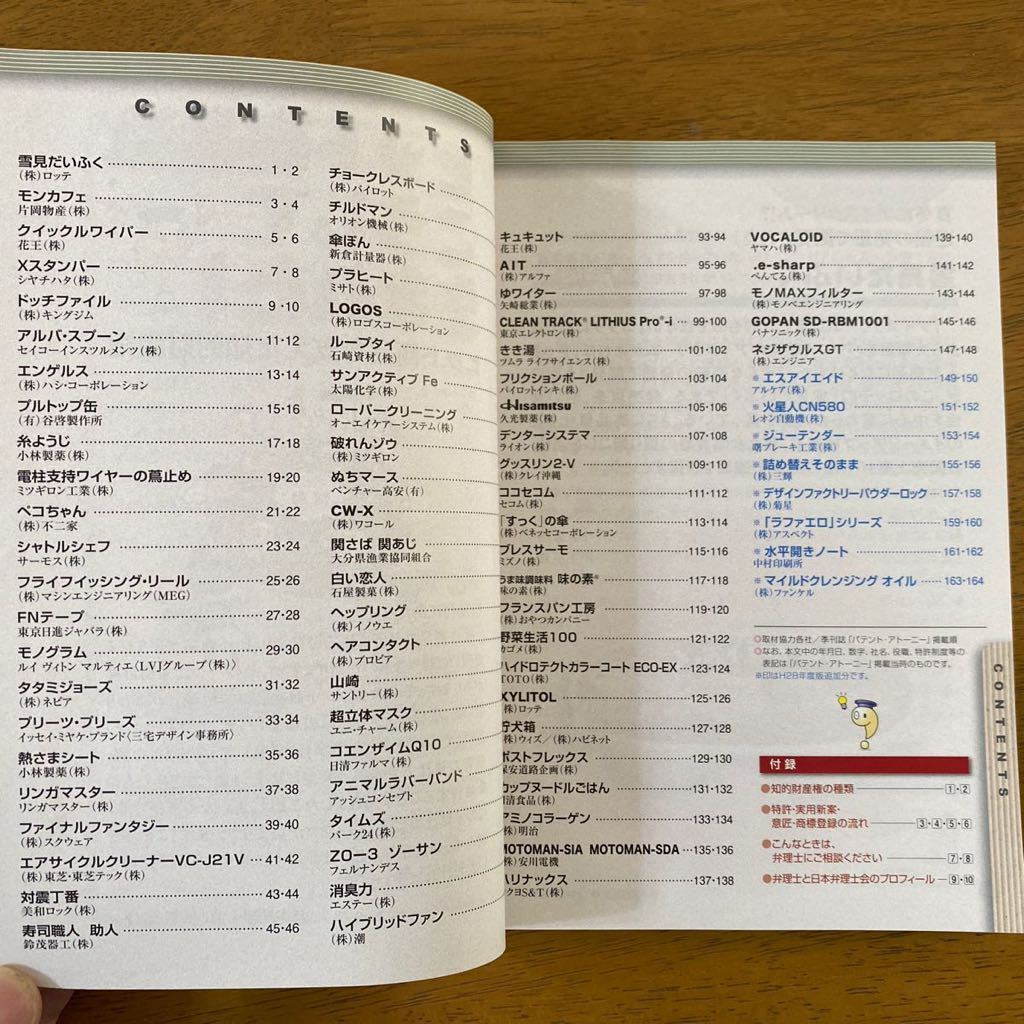 CONTENTS
雪見だいふく 1・2
(株)ロッテ
モンカフェ 3・4
片岡物産(株)
クイックルワイパー 5・6
花王(株)
Xスタンパー 7・8
シヤチハタ(株)
ドッチファイル 9・10
(株)キングジム
アルバ・スプーン 11・12
セイコーインスツルメンツ(株)
エンゲルス 13・14
(株)ハシ・コーポレーション
プルトップ缶 15・16
(有)谷啓製作所
糸ようじ 17・18
小林製薬(株)
電柱支持ワイヤーの蔦止め 19・20
ミツギロン工業(株)
ペコちゃん 21・22
(株)不二家
シャトルシェフ 23・24
サーモス(株)
フライフイッシング・リール 25・26
(株)マシンエンジニアリング(MEG)
FNテープ 27・28
東京日進ジャバラ(株)
モノグラム 29・30
ルイ ヴィトン マルティエ〈LVJグループ(株)〉
タタミジョーズ 31・32
(株)ネピア
プリーツ・プリーズ 33・34
イッセイ・ミヤケ・ブランド〈三宅デザイン事務所〉
熱さまシート 35・36
小林製薬(株)
リンガマスター 37・38
リンガマスター(株)
ファイナルファンタジー 39・40
(株)スクウェア
エアサイクルクリーナーVC-J21V 41・42
(株)東芝・東芝テック(株)
対震丁番 43・44
美和ロック(株)
寿司職人 助人 45・46
鈴茂器工(株)
チョークレスボード
(株)パイロット
チルドマン
オリオン機械(株)
傘ぽん
新倉計量器(株)
プラヒート
ミサト(株)
LOGOS
(株)ロゴスコーポレーション
ループタイ
石崎資材(株)
サンアクティブ Fe
太陽化学(株)
ローバークリーニング
オーエイケアーシステム(株)
破れんゾウ
(株)ミツギロン
ぬちマース
ベンチャー高安(有)
CW-X
(株)ワコール
関さば 関あじ
大分県漁業協同組合
白い恋人
石屋製菓(株)
ヘップリング
(株)イノウエ
ヘアコンタクト
(株)プロピア
山崎
サントリー(株)
超立体マスク
ユニ・チャーム(株)
コエンザイムQ10
日清ファルマ(株)
アニマルラバーバンド
アッシュコンセプト
タイムズ
パーク24(株)
ZO-3 ゾーサン
フェルナンデス
消臭力
エステー(株)
ハイブリッドファン
(株)潮
キュキュット 93・94
花王(株)
AIT 95・96
(株)アルファ
ゆワイター 97・98
矢崎総業(株)
CLEAN TRACK® LITHIUS Pro®-i 99・100
東京エレクトロン(株)
きき湯 101・102
ツムラ ライフサイエンス(株)
フリクションボール 103・104
パイロットインキ(株)
Hisamitsu 105・106
久光製薬(株)
デンターシステマ 107・108
ライオン(株)
グッスリン2-V 109・110
(株)クレイ沖縄
ココセコム 111・112
セコム(株)
「すっく」の傘 113・114
(株)ベネッセコーポレーション
ブレスサーモ 115・116
ミズノ(株)
うま味調味料 味の素® 117・118
味の素(株)
フランスパン工房 119・120
(株)おやつカンパニー
野菜生活100 121・122
カゴメ(株)
ハイドロテクトカラーコート ECO-EX 123・124
TOTO(株)
XYLITOL 125・126
(株)ロッテ
貯犬箱 127・128
(株)ウィズ／(株)ハピネット
ポストフレックス 129・130
保安道路企画(株)
カップヌードルごはん 131・132
日清食品(株)
アミノコラーゲン 133・134
(株)明治
MOTOMAN-SIA MOTOMAN-SDA 135・136
(株)安川電機
ハリナックス 137・138
コクヨS&T(株)
VOCALOID 139・140
ヤマハ(株)
.e-sharp 141・142
ぺんてる(株)
モノMAXフィルター 143・144
(株)モノベエンジニアリング
GOPAN SD-RBM1001 145・146
パナソニック(株)
ネジザウルスGT 147・148
(株)エンジニア
※エスアイエイド 149・150
アルケア(株)
※火星人CN580 151・152
レオン自動機(株)
※ジューテンダー 153・154
曙ブレーキ工業(株)
※詰め替えそのまま 155・156
(株)三輝
※デザインファクトリーパウダーロック 157・158
(株)菊星
※「ラファエロ」シリーズ 159・160
(株)アスペクト
※水平開きノート 161・162
中村印刷所
※マイルドクレンジング オイル 163・164
(株)ファンケル
◎取材協力各社／季刊誌「パテント・アトーニー」掲載順
◎なお、本文中の年月日、数字、社名、役職、特許制度等の
表記は「パテント・アトーニー」掲載当時のものです。
※印はH28年度版追加分です。
付録
●知的財産権の種類 1・2
●特許・実用新案・
意匠・商標登録の流れ 3・4・5・6
●こんなときは、
弁理士にご相談ください 7・8
●弁理士と日本弁理士会のプロフィール 9・10
CONTENTS